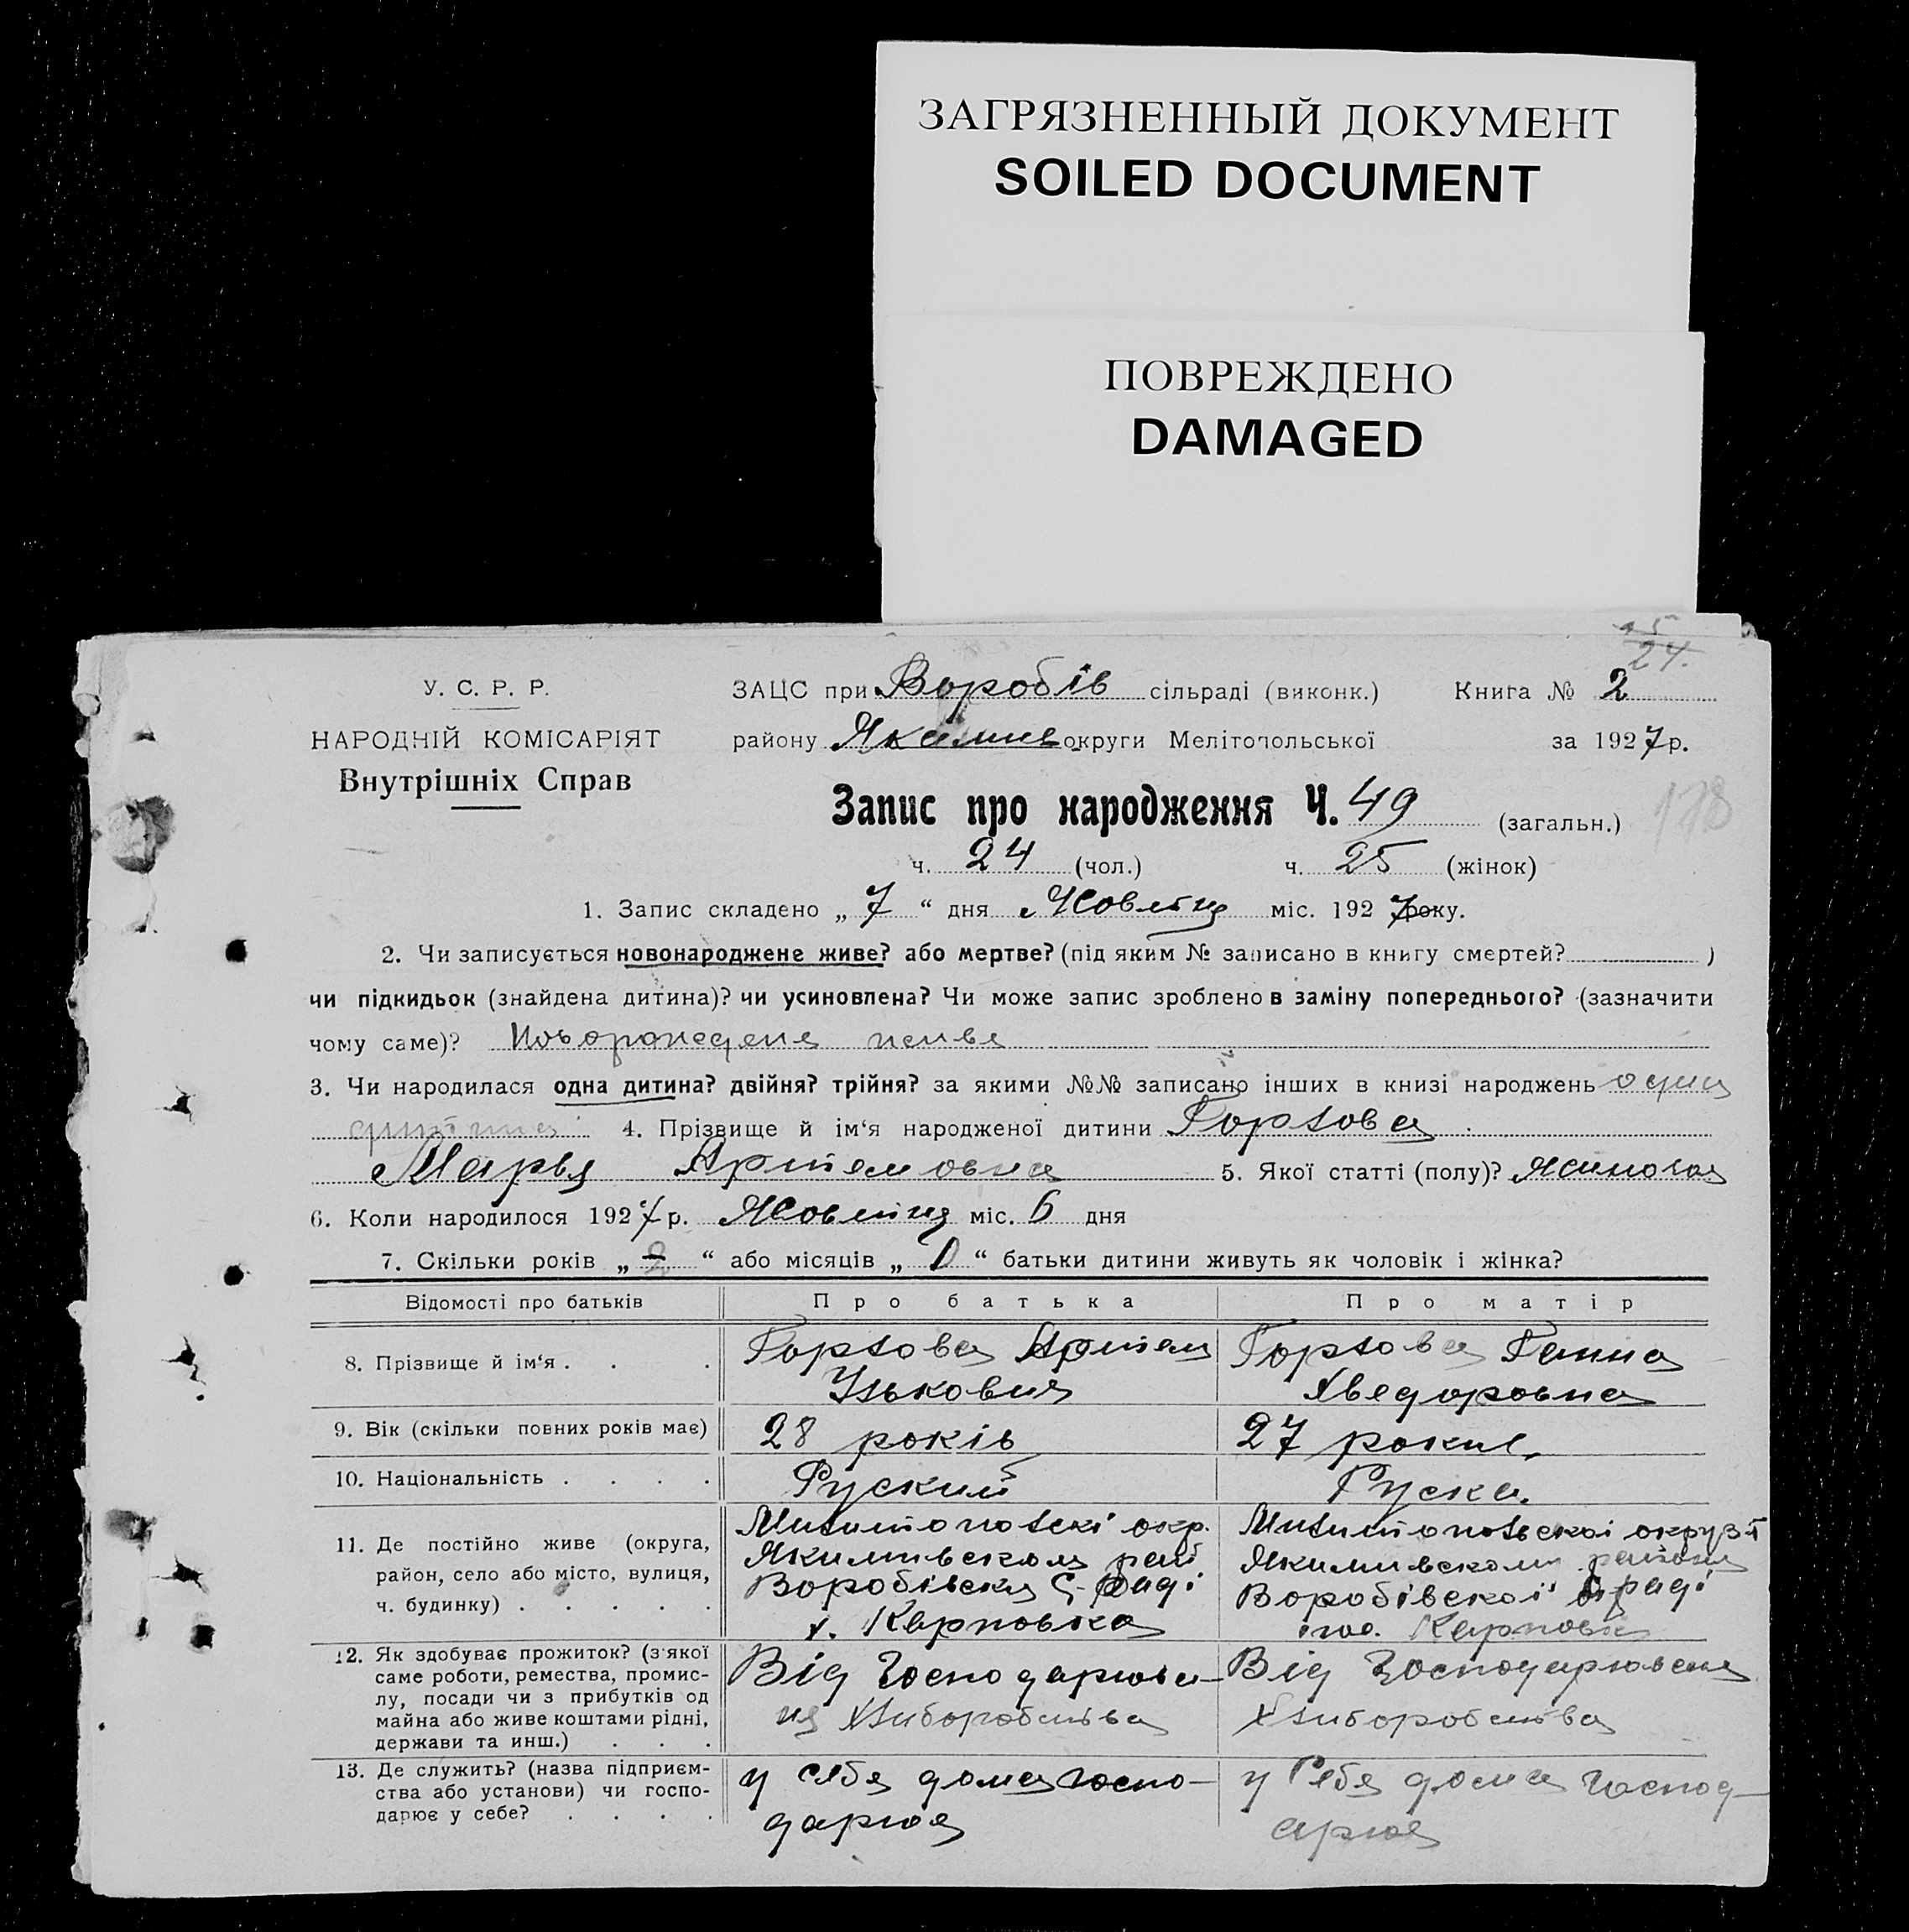 ЗАГРЯЗНЕННЫЙ ДОКУМЕНТ
SOILED DOCUMENT
ПОВРЕЖДЕНО
DAMAGED
24.
У. С. Р. Р.
НАРОДНІЙ КОМІСАРІЯТ
Внутрішніх Справ
ЗАЦС при Воробів сільраді (виконк.) Книга № 2
району Якимив округи Мелітопольської за 1927 р.
Запис про народження Ч. 49 (загальн.) 178
ч. 24 (чол.) ч. 25 (жінок)
1. Запис складено „ 7 “ дня Жовтня міс. 1927 року.
2. Чи записується новонароджене живе? або мертве? (під яким № записано в книгу смертей? )
чи підкидьок (знайдена дитина)? чи усиновлена? Чи може запис зроблено в заміну попереднього? (зазначити
чому саме)? Новорожденя живе
3. Чи народилася одна дитина? двійня? трійня? за якими №№ записано інших в книзі народжень одна
дитина 4. Прізвище й ім‘я народженої дитини Горлова
Марья Артемовна 5. Якої статті (полу)? Жиночая
6. Коли народилося 1927 р. Жовтня міс. 6 дня
7. Скільки років „ “ або місяців „ “ батьки дитини живуть як чоловік і жінка?
Відомості про батьків Про батька Про матір
8. Прізвище й ім‘я . . . Горлова Артем Горлова Ганна
Ильковия Хведоровна
9. Вік (скільки повних років має) 28 років 27 рокив
10. Національність . . . . Руский Руска.
11. Де постійно живе (округа,
район, село або місто, вулиця,
ч. будинку) . . . . .
Милитополскі окр.
Якимивском рай
Воробівску С-раді
х. Карповка
Милитопольскоі окрузі
Якимивском району
Воробівскоі раді
Карповка
12. Як здобуває прожиток? (з якої
саме роботи, ремества, промис-
лу, посади чи з прибутків од
майна або живе коштами рідні,
держави та инш.) . . .
Від Господарюва-
ня Хлиборобства
Від Господарюваня
Хлиборобства
13. Де служить? (назва підприєм-
ства або установи) чи госпо-
дарює у себе? . . . .
у себя дома госпо-
дарюя
у Себя дома господ-
арюя